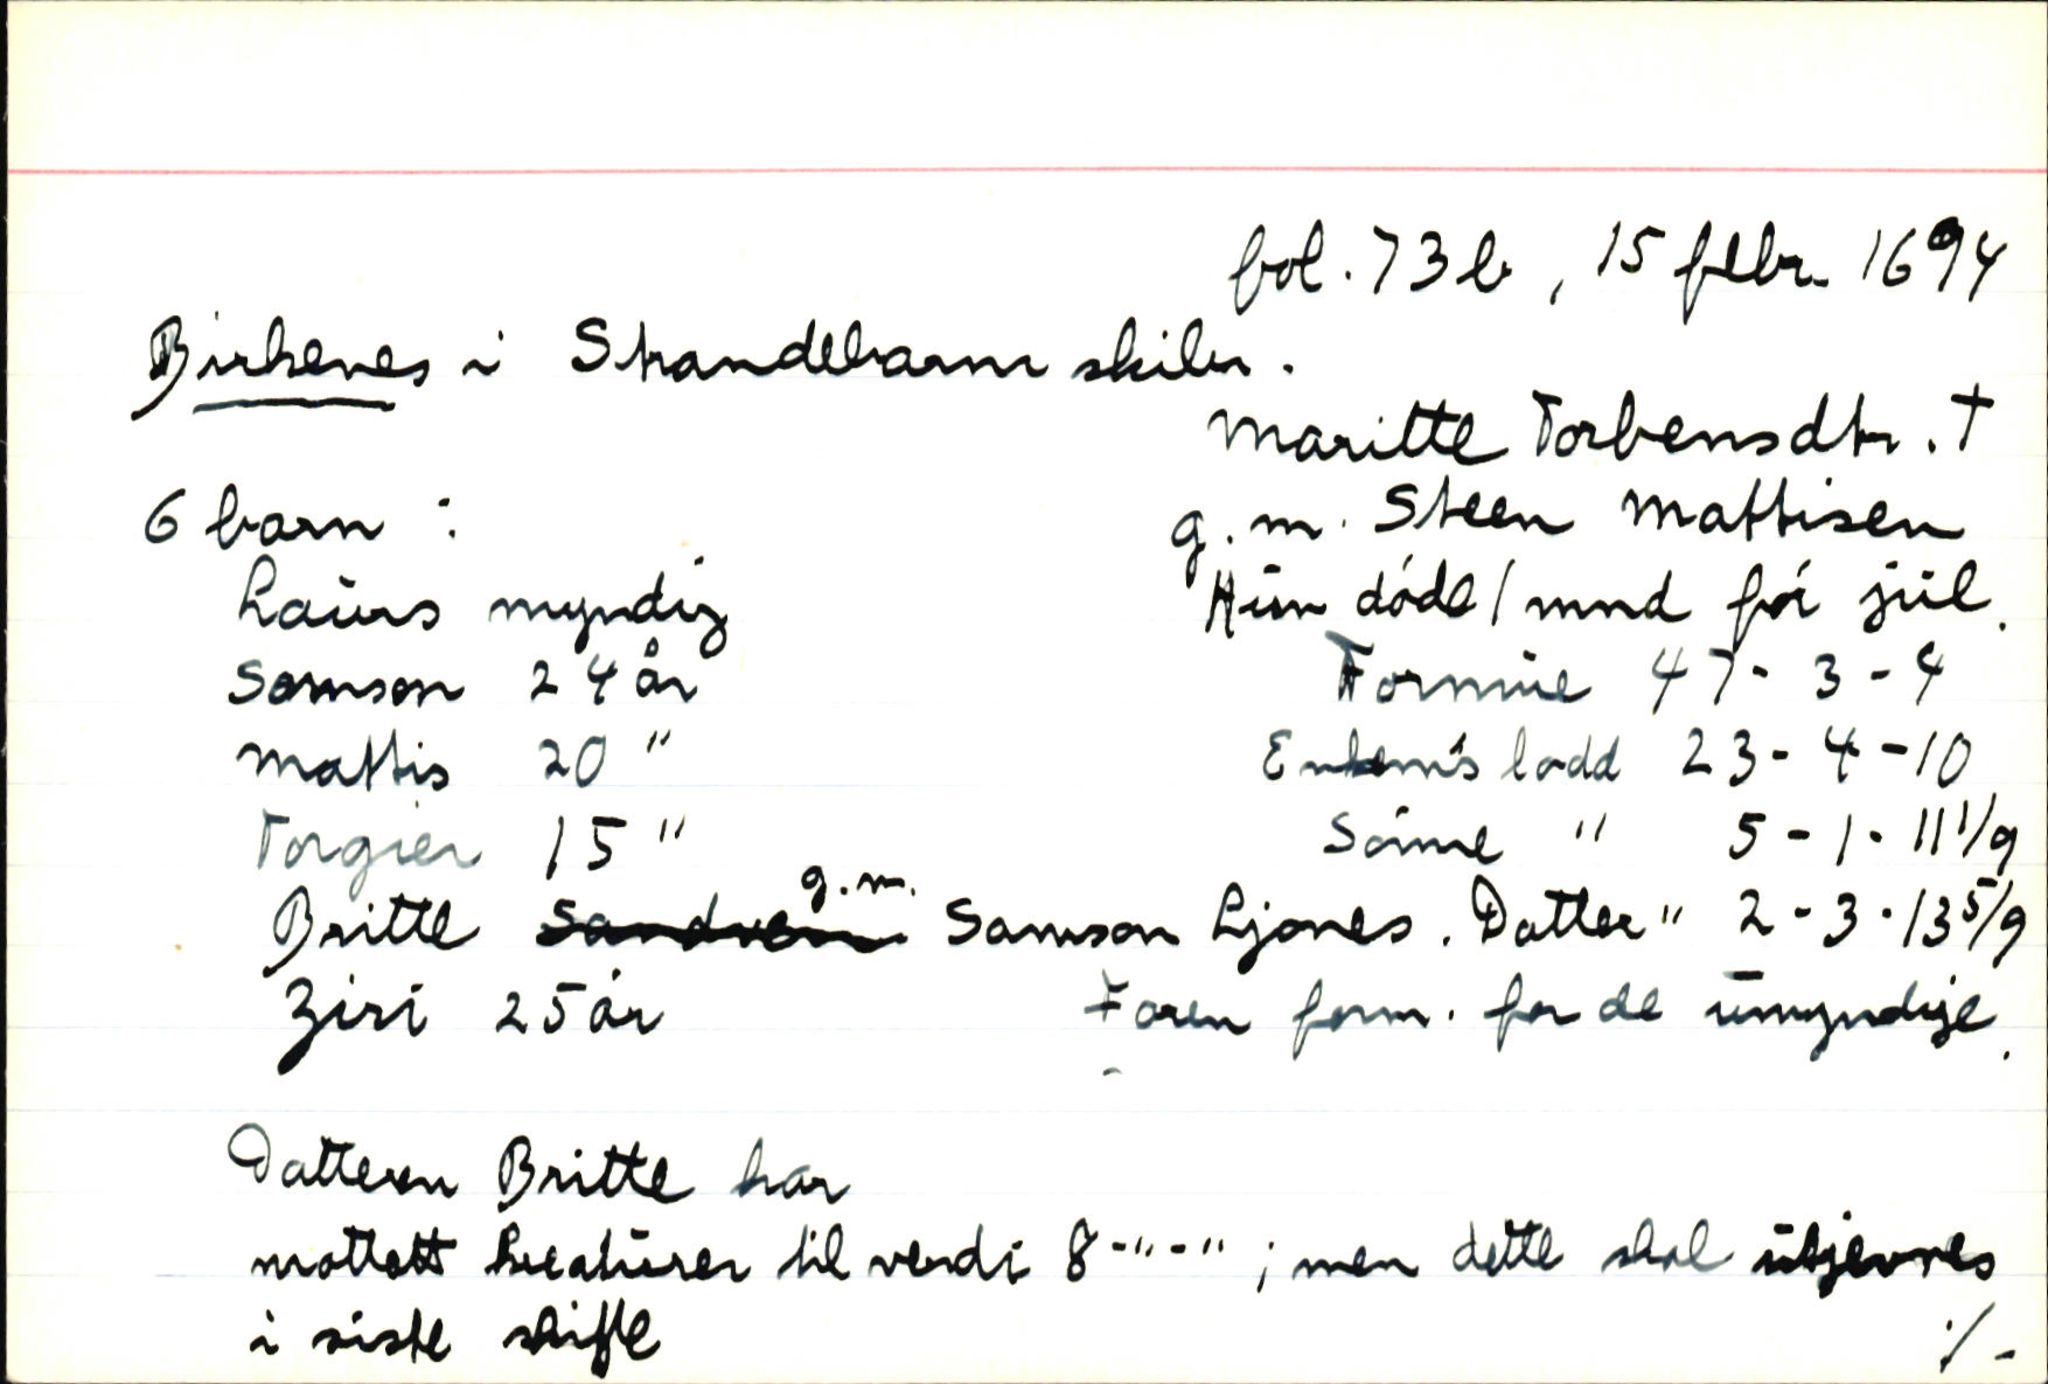 fol. 73 b, 15 febr. 1694
Birkenes i Strandebarm skibr.
Maritte Torbensdtr. †
6 barn : g. m. Steen Mattisen
Laurs myndig Hun døde 1 mnd før jul.
Samson 24 år Formue 47 - 3 - 4
Mattis 20 " Enkem's lodd 23 - 4 - 10
Torgier 15 " Sønne " 5 - 1 - 11 1/9
Britte g. m. Samson Ljones. Datter " 2 - 3 - 13 5/9
Ziri 25 år Faren form. for de umyndige.
Datteren Britte har
mottatt kreaturer til verdi 8 - " - " ; men dette skal utjevnes
i siste skifte ./-